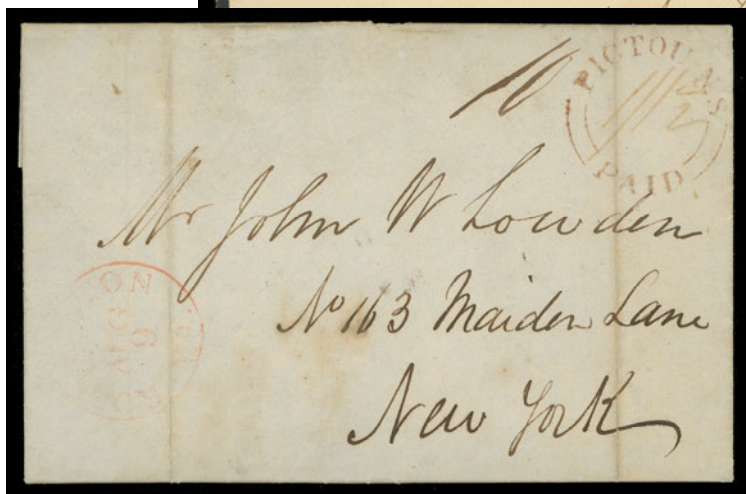 10
PICTOU N.S
11 1/2
PAID.
Mr John W Lowden
No 163 Maiden Lane
New York
ON
AUG
9